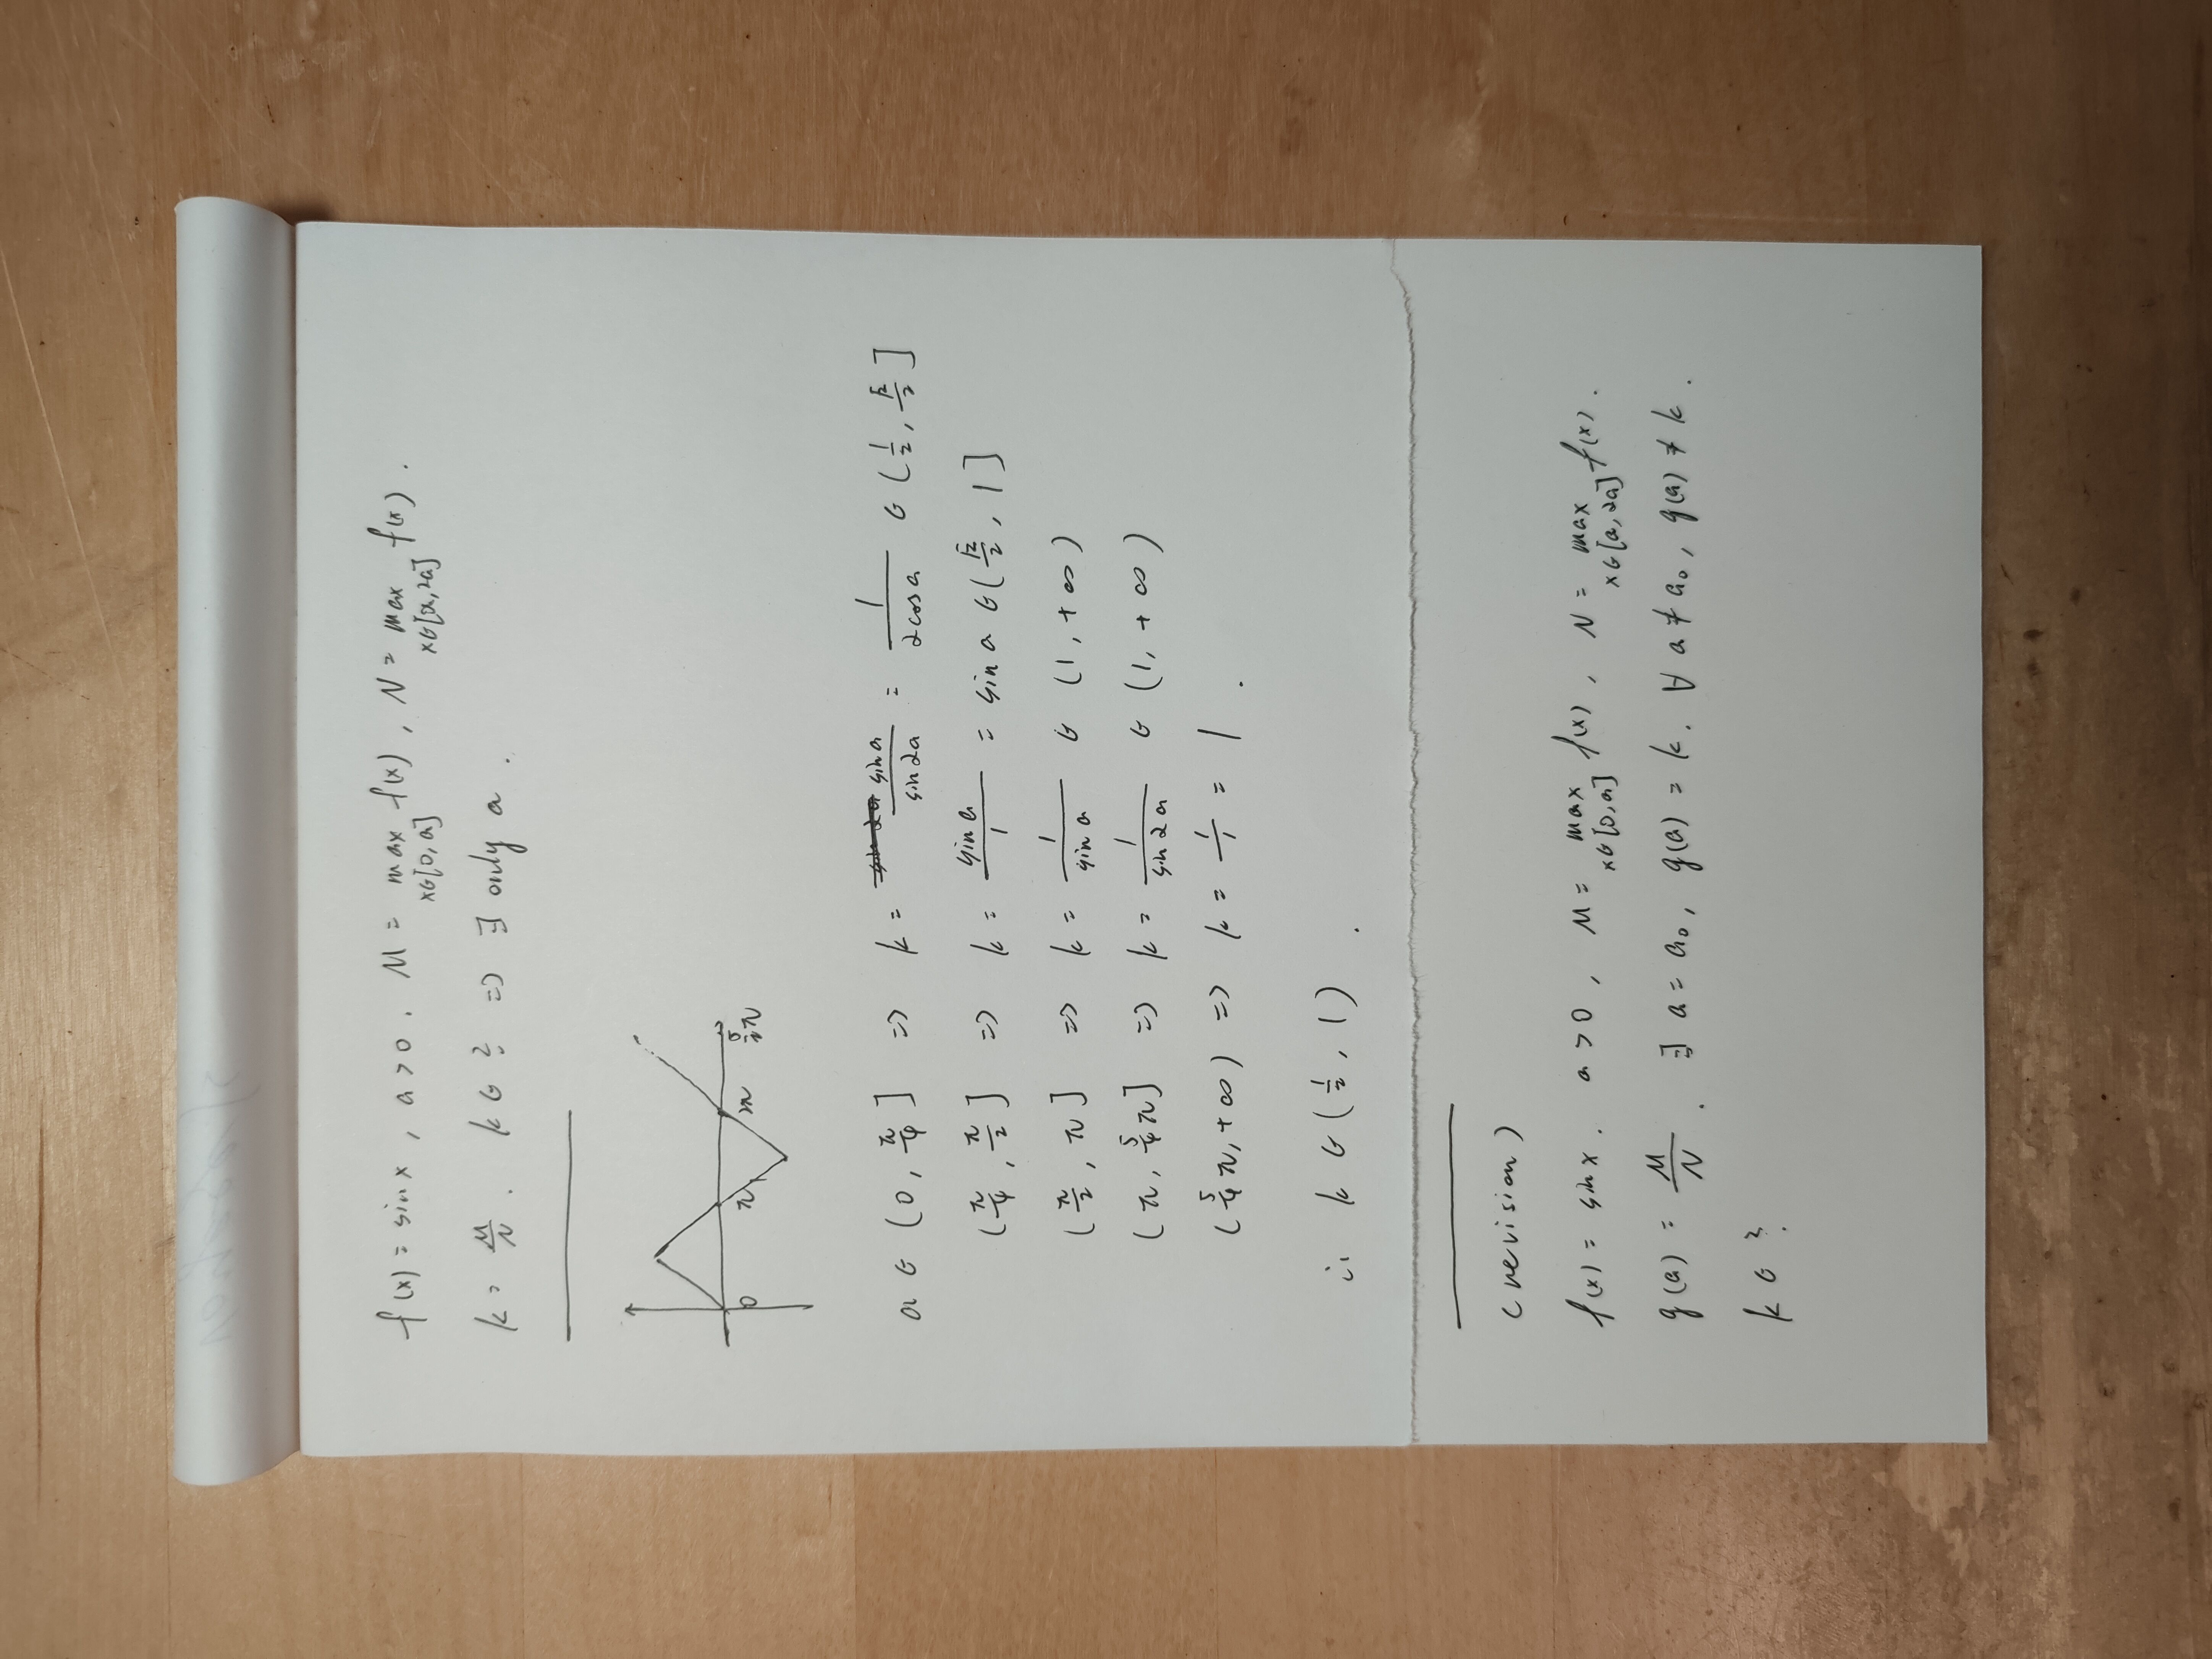 f(x) = sin x, a > 0. M = max_{x∈[0, a]} f(x), N = max_{x∈[a, 2a]} f(x).
k = M/N. k ∈ ? => ∃ only a.
0 π 2π 5/2 π
a ∈ (0, π/4] => k = sin a / sin 2a = 1 / 2cos a ∈ (1/2, √2/2]
(π/4, π/2] => k = sin a / 1 = sin a ∈ (√2/2, 1]
(π/2, π] => k = 1 / sin a ∈ (1, +∞)
(π, 5/4 π] => k = 1 / sin 2a ∈ (1, +∞)
(5/4 π, +∞) => k = 1/1 = 1.
∴ k ∈ (1/2, 1).
(revision)
f(x) = sin x. a > 0, M = max_{x∈[0, a]} f(x), N = max_{x∈[a, 2a]} f(x).
g(a) = M/N. ∃ a = a₀, g(a) = k. ∀ a ≠ a₀, g(a) ≠ k.
k ∈ ?